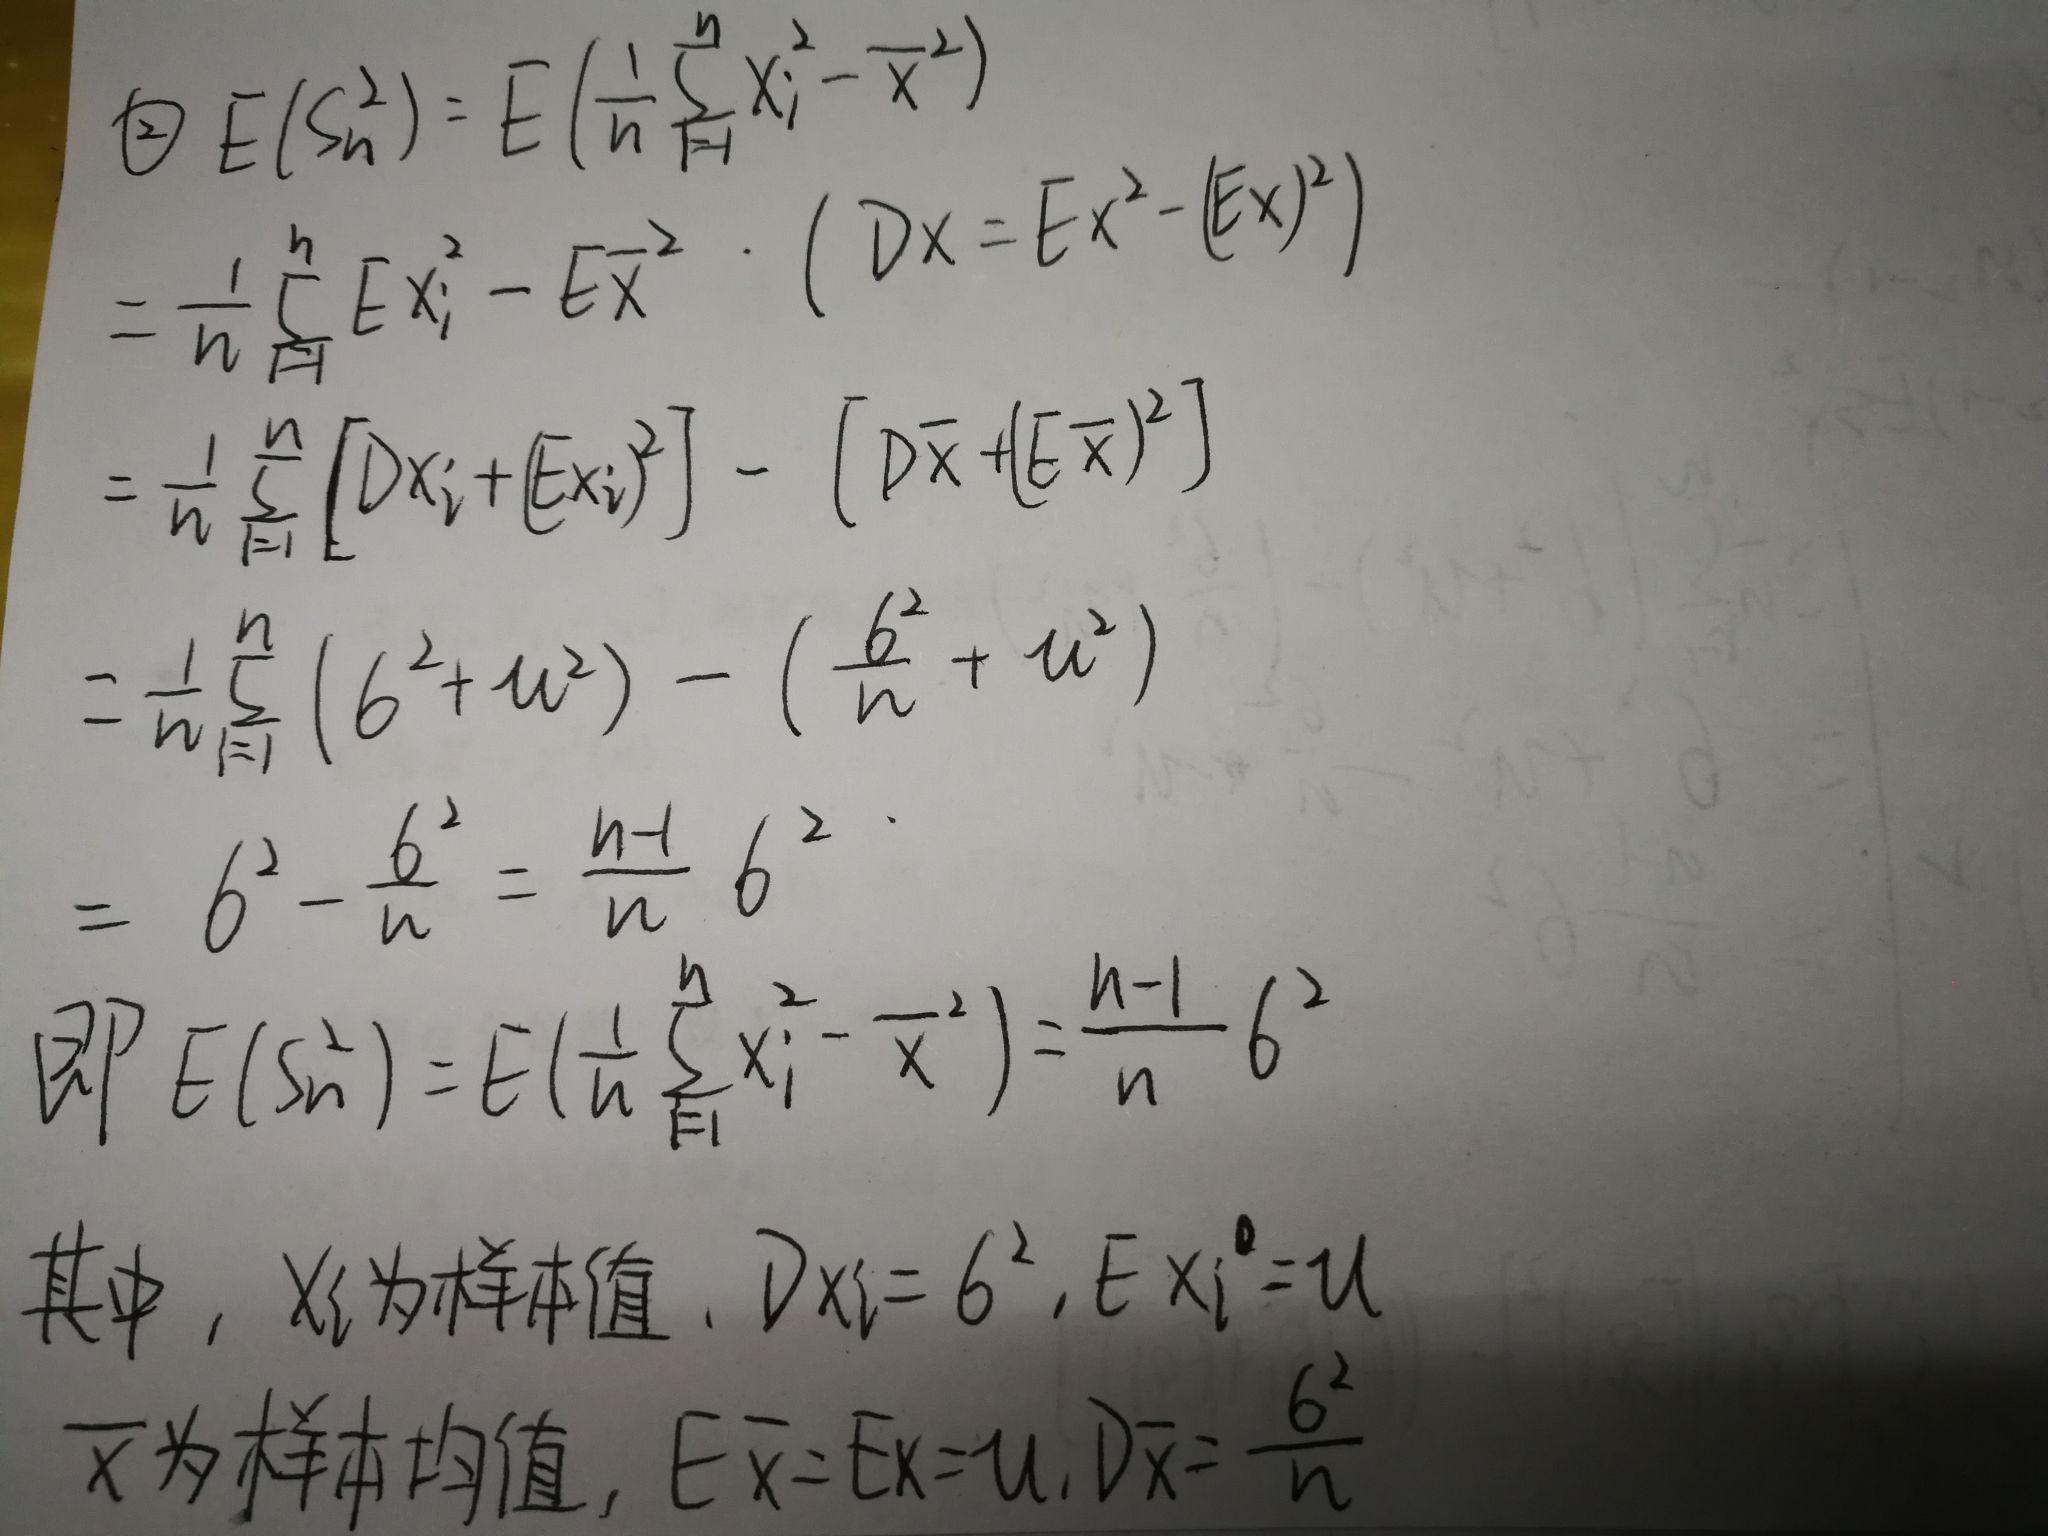 ② E(Sₙ²) = E(1/n ∑ᵢ₌₁ⁿ xᵢ² − x̄²)
= 1/n ∑ᵢ₌₁ⁿ Exᵢ² − Ex̄² . (Dx = Ex² − (Ex)²)
= 1/n ∑ᵢ₌₁ⁿ [Dxᵢ + (Exᵢ)²] − [Dx̄ + (Ex̄)²]
= 1/n ∑ᵢ₌₁ⁿ (σ² + u²) − (σ²/n + u²)
= σ² − σ²/n = (n−1)/n σ² .
即 E(Sₙ²) = E(1/n ∑ᵢ₌₁ⁿ xᵢ² − x̄²) = (n−1)/n σ²
其中, xᵢ为样本值、Dxᵢ = σ², Exᵢ = u
x̄为样本均值, Ex̄ = Ex = u, Dx̄ = σ²/n